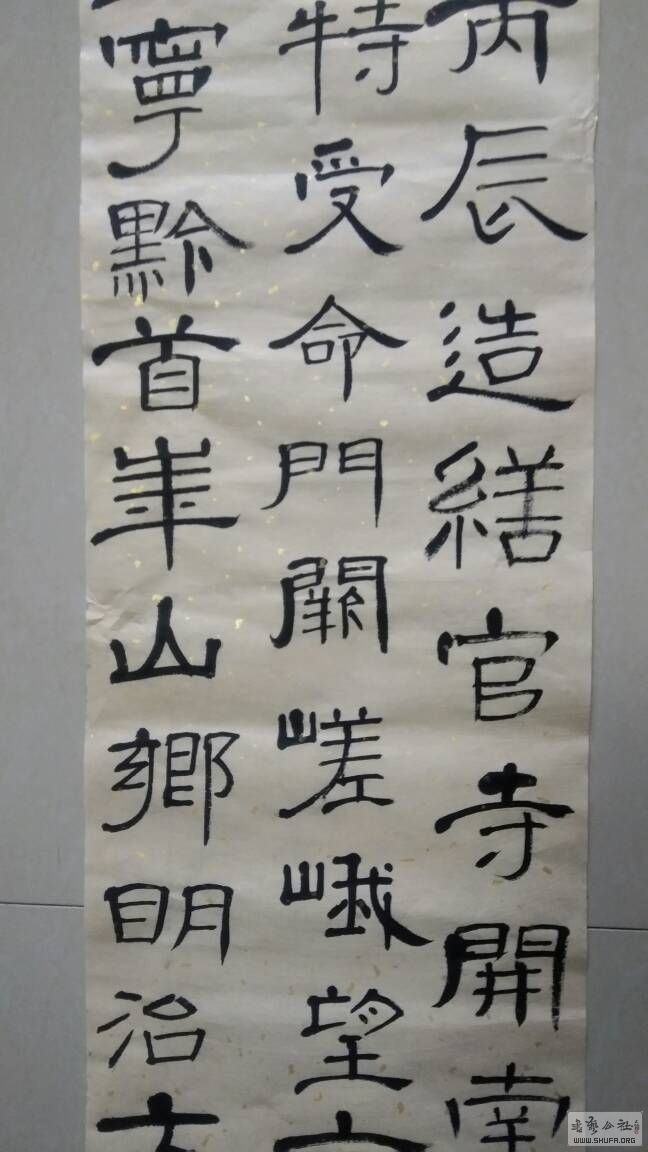 丙辰造繕官寺開南
特受命門闕嵯峨望
寧黔首華山鄉明治
WWW.SHUFA.ORG